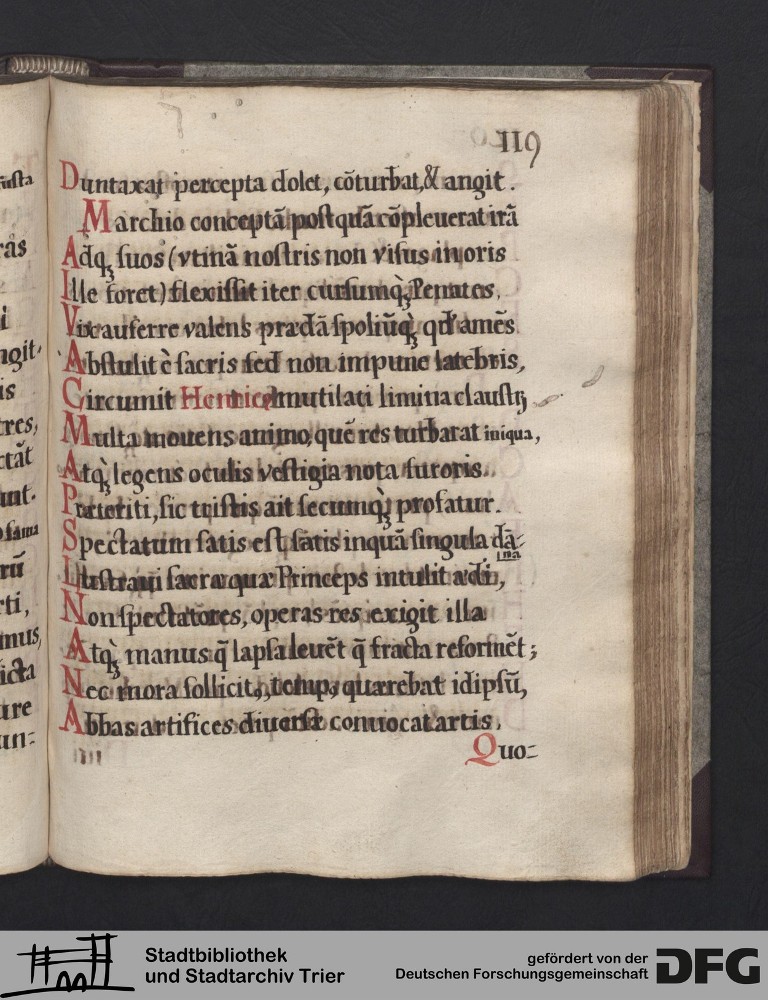 119
Duntaxat percepta dolet, cōturbat, & angit.
Marchio conceptā postquā cōpleuerat irā
Adq̨ suos (vtinā nostris non visus in oris
Ille foret) flexissit iter cursumq̨; Penates,
Vix auferre valens prædā spoliūq̨, qđ amēs
Abstulit è sacris sed non impune latebris,
Circumit Henrice mutilati limina claustrj
Multa mouens animo, quē res turbarat iniqua,
Atq̨ legens oculis vestigia nota furoris.
Præteriti, sic tristis ait secumq̨; profatur.
Spectatum satis est, satis inquā singula dā-
ma
Illustraui sacra quæ Princeps intulit ædi,
Non spectatores, operas res exigit illa
Atq̨ manus q̄ lapsa leuēt q̄ fracta reformēt;
Nec mora quærebat id ipsū,
Abbas artifices diuersæ conuocat artis.
Quo-
usta
ras
i
ngit.
is
tres,
ctāt
unt.
fama
rū
rti,
mus,
icta
are
un-
Stadtbibliothek
und Stadtarchiv Trier
gefördert von der
Deutschen Forschungsgemeinschaft
DFG